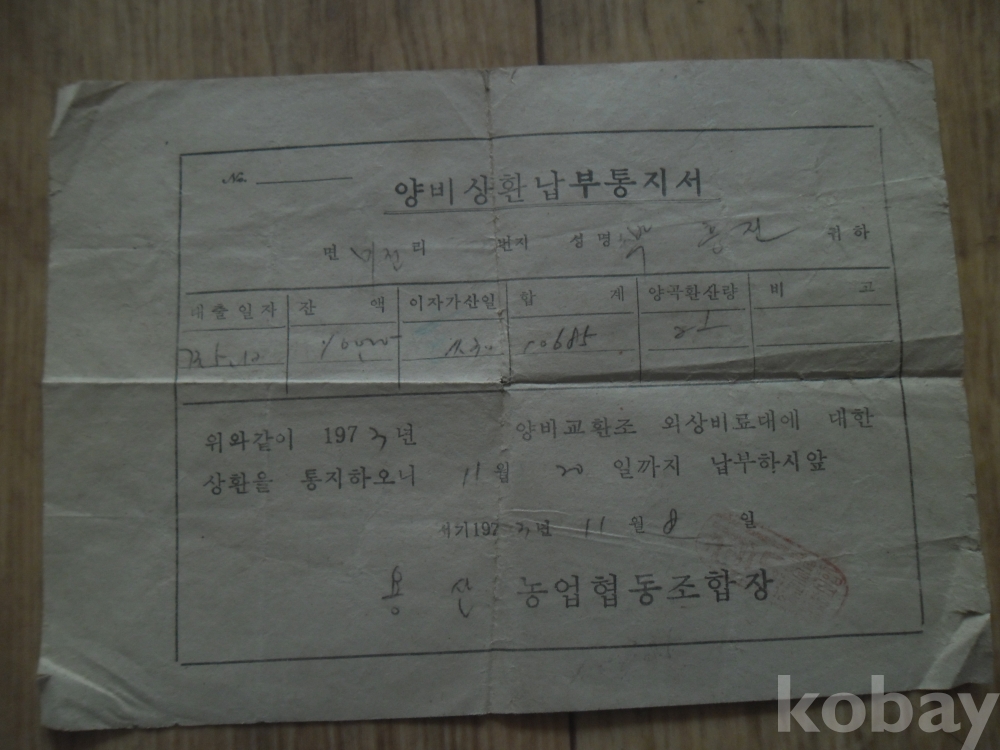 No.
양비상환납부통지서
면 리 번지 성명 귀하
대출일자 잔 액 이자가산일 합 계 양곡환산량 비 고
10685
위와같이 1973년 양비교환조 외상비료대에 대한
상환을 통지하오니 11월 20일까지 납부하시앞
서기1973년 11월 8일
용산 농업협동조합장
kobay